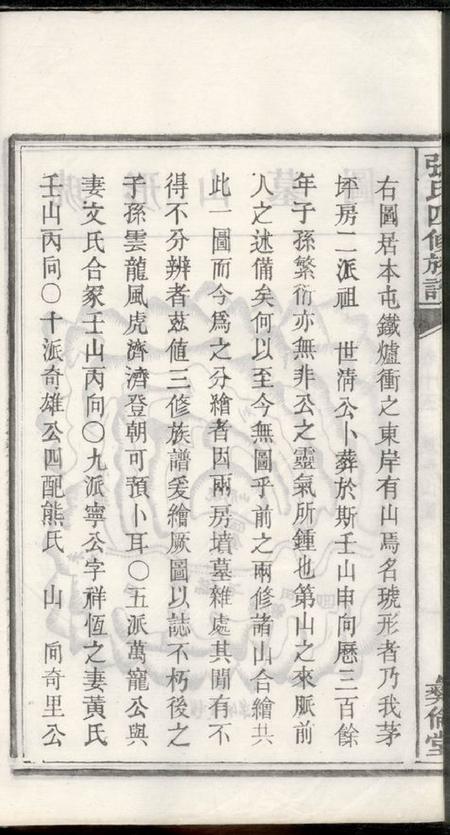 張氏四修族譜
彝倫堂
右圖居本屯鐵爐衝之東岸有山焉名琥形者乃我茅
坪房二派祖 世清公卜葬於斯壬山申向歷三百餘
年子孫繁衍亦無非公之靈氣所鍾也第山之來脈前
人之述備矣何以至今無圖乎前之兩修諸山合繪共
此一圖而今爲之分繪者因兩房墳墓雜處其間有不
得不分辨者茲值三修族譜爰繪厥圖以誌不朽後之
子孫雲龍風虎濟濟登朝可預卜耳○五派萬寵公與
妻文氏合冢壬山丙向○九派寧公字祥恆之妻黃氏
壬山丙向○十派奇雄公四配熊氏 山 向奇里公